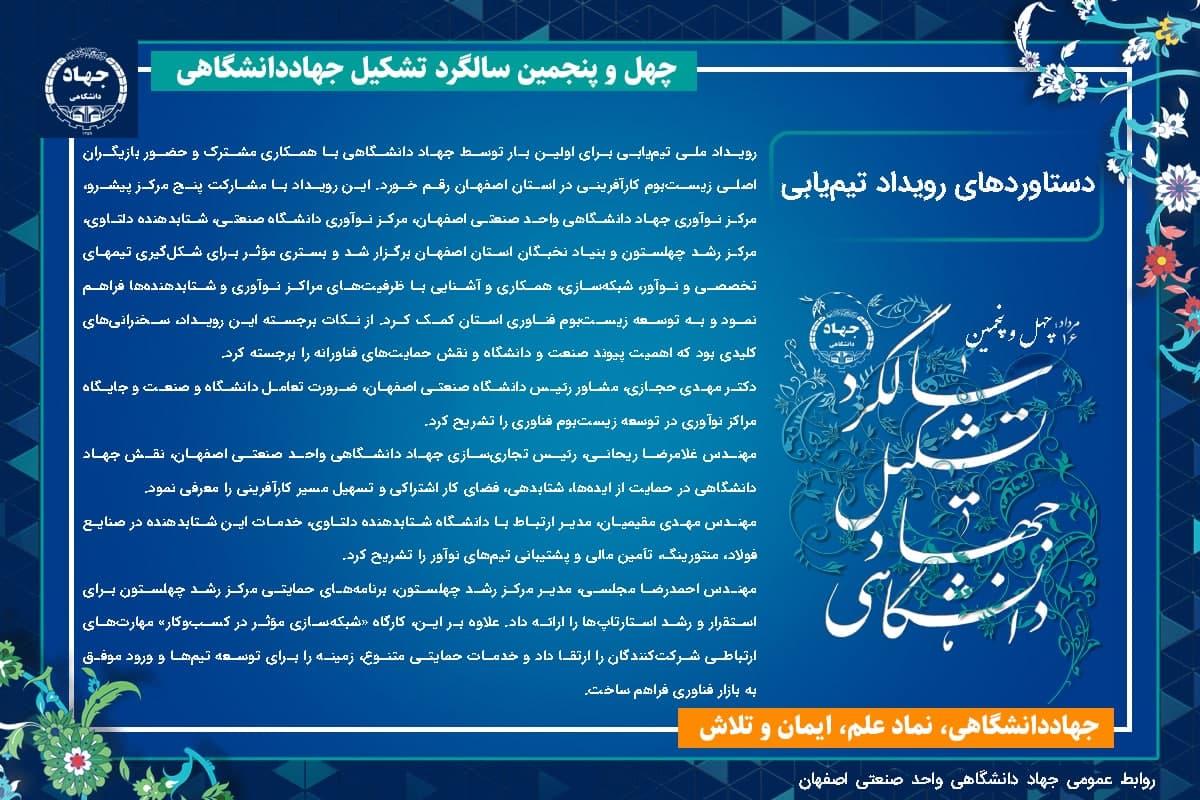 جهاد
دانشگاهی
۱۳۵۹
چهل و پنجمین سالگرد تشکیل جهاددانشگاهی
دستاوردهای رویداد تیم‌یابی
رویداد ملی تیم‌یابی برای اولین بار توسط جهاد دانشگاهی با همکاری مشترک و حضور بازیگران
اصلی زیست‌بوم کارآفرینی در استان اصفهان رقم خورد. این رویداد با مشارکت پنج مرکز پیشرو،
مرکز نوآوری جهاد دانشگاهی واحد صنعتی اصفهان، مرکز نوآوری دانشگاه صنعتی، شتابدهنده دلتاوی،
مرکز رشد چهلستون و بنیاد نخبگان استان اصفهان برگزار شد و بستری مؤثر برای شکل‌گیری تیمهای
تخصصی و نوآور، شبکه‌سازی، همکاری و آشنایی با ظرفیت‌های مراکز نوآوری و شتابدهنده‌ها فراهم
نمود و به توسعه زیست‌بوم فناوری استان کمک کرد. از نکات برجسته این رویداد، سخنرانی‌های
کلیدی بود که اهمیت پیوند صنعت و دانشگاه و نقش حمایت‌های فناورانه را برجسته کرد.
دکتر مهدی حجازی، مشاور رئیس دانشگاه صنعتی اصفهان، ضرورت تعامل دانشگاه و صنعت و جایگاه
مراکز نوآوری در توسعه زیست‌بوم فناوری را تشریح کرد.
مهندس غلامرضا ریحانی، رئیس تجاری‌سازی جهاد دانشگاهی واحد صنعتی اصفهان، نقش جهاد
دانشگاهی در حمایت از ایده‌ها، شتابدهی، فضای کار اشتراکی و تسهیل مسیر کارآفرینی را معرفی نمود.
مهندس مهدی مقیمیان، مدیر ارتباط با دانشگاه شتابدهنده دلتاوی، خدمات این شتابدهنده در صنایع
فولاد، منتورینگ، تأمین مالی و پشتیبانی تیم‌های نوآور را تشریح کرد.
مهندس احمدرضا مجلسی، مدیر مرکز رشد چهلستون، برنامه‌های حمایتی مرکز رشد چهلستون برای
استقرار و رشد استارتاپ‌ها را ارائه داد. علاوه بر این، کارگاه «شبکه‌سازی مؤثر در کسب‌وکار» مهارت‌های
ارتباطی شرکت‌کنندگان را ارتقا داد و خدمات حمایتی متنوع، زمینه را برای توسعه تیم‌ها و ورود موفق
به بازار فناوری فراهم ساخت.
۱۶ مرداد؛ چهل و پنجمین
سالگرد
تشکیل
جهاد
دانشگاهی
جهاد
دانشگاهی
جهاددانشگاهی، نماد علم، ایمان و تلاش
روابط عمومی جهاد دانشگاهی واحد صنعتی اصفهان